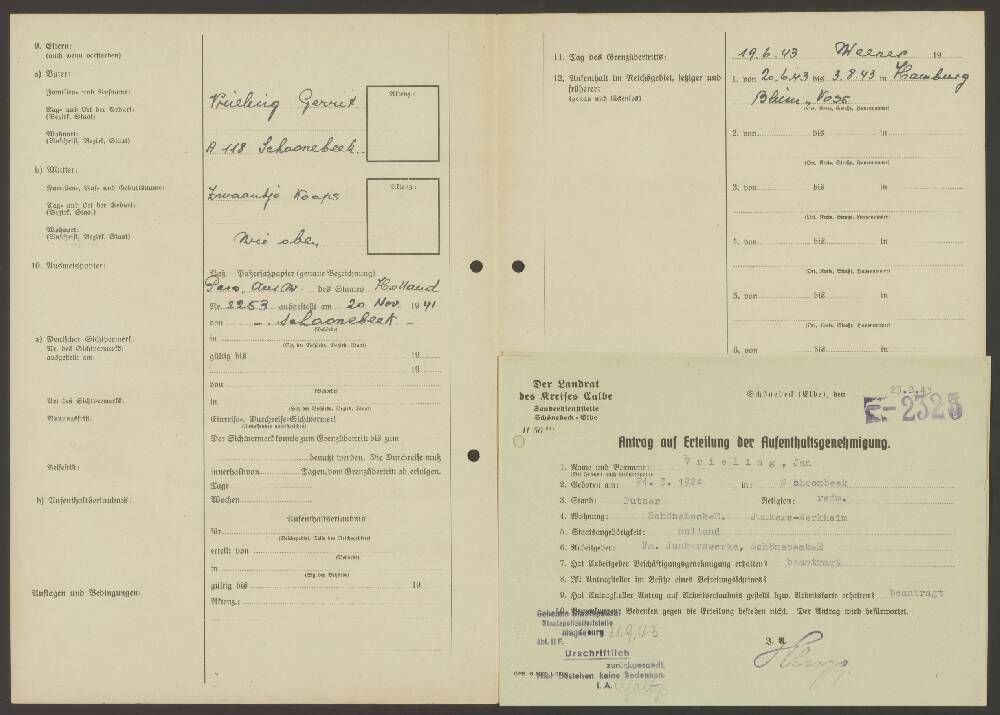 9. Eltern:
(auch wenn verstorben)
a) Vater:
Familien- und Rufname:
Vrieling Gerrit
Aktenz.:
Tag- und Ort der Geburt:
(Bezirk, Staat)
Wohnort:
(Anschrift, Bezirk, Staat)
A 118 Schoonebeek.
b) Mutter:
Familien-, Ruf- und Geburtsname:
Zwaantje Koops
Aktenz.:
Tag- und Ort der Geburt:
(Bezirk, Staat)
Wohnort:
(Anschrift, Bezirk, Staat)
Wie oben,
10. Ausweispapier:
Paß — Paßersatzpapier (genaue Bezeichnung)
Pers. Ausw. des Staates Holland
Nr. 2253 ausgestellt am 20 Nov. 1941
von -. Schoonebeek -
(Behörde)
in
(Sitz der Behörde, Bezirk, Staat)
a) Deutscher Sichtvermerk:
Nr. des Sichtvermerks:
ausgestellt am:
gültig bis 19
19
von
(Behörde)
Art des Sichtvermerks:
in
(Sitz der Behörde, Bezirk, Staat)
Nutzungsfrist:
Einreise-, Durchreise-Sichtvermerk
(Nichtzutreffendes durchstreichen)
Der Sichtvermerk konnte zum Grenzübertritt bis zum
benutzt werden. Die Durchreise muß
Reisefrist:
innerhalb von Tagen, vom Grenzübertritt ab, erfolgen.
Tage
b) Aufenthaltserlaubnis:
Wochen
Aufenthaltserlaubnis
für
(Reichsgebiet, Teile des Reichsgebietes)
erteilt von
(Behörde)
in
(Sitz der Behörde)
gültig bis 19
Auflagen und Bedingungen:
Aktenz.:
11. Tag des Grenzübertritts:
19.6.43 Weener 19
12. Aufenthalt im Reichsgebiet, jetziger und
früherer:
(genau und lückenlos)
1. von 20.6.43 bis 3.8.43 in Hamburg
Blum u. Voss
(Ort, Kreis, Straße, Hausnummer)
2. von bis in
(Ort, Kreis, Straße, Hausnummer)
3. von bis in
(Ort, Kreis, Straße, Hausnummer)
4. von bis in
(Ort, Kreis, Straße, Hausnummer)
5. von bis in
(Ort, Kreis, Straße, Hausnummer)
6. von bis in
Der Landrat
des Kreises Calbe
Sonderdienststelle
Schönebeck-Elbe
II 56
Schönebeck (Elbe), den 23.8.43
E- 2325
Antrag auf Erteilung der Aufenthaltsgenehmigung.
1. Name und Vorname: Vrieling, Jan
(Bei Frauen auch Geburtsname)
2. Geboren am: 24. 3. 1924 in: Schoonbeek
3. Stand: Putzer Religion: refm.
4. Wohnung: Schönebeck-E. Junkers-Werkheim
5. Staatsangehörigkeit: Holland
6. Arbeitgeber: Fa. Junkerswerke, Schönebeck-E
7. Hat Arbeitgeber Beschäftigungsgenehmigung erhalten? beantragt
8. Ist Antragsteller im Besitze eines Befreiungsscheines?
9. Hat Antragsteller Antrag auf Arbeitserlaubnis gestellt bzw. Arbeitskarte erhalten? beantragt
10. Bemerkungen: Bedenken gegen die Erteilung bestehen nicht. Der Antrag wird befürwortet.
Geheime Staatspolizei
Staatspolizeileitstelle
Magdeburg 31.8.43
Abt. II F.
Urschriftlich
zurückgesandt.
Hier bestehen keine Bedenken.
I. A.
J. A.